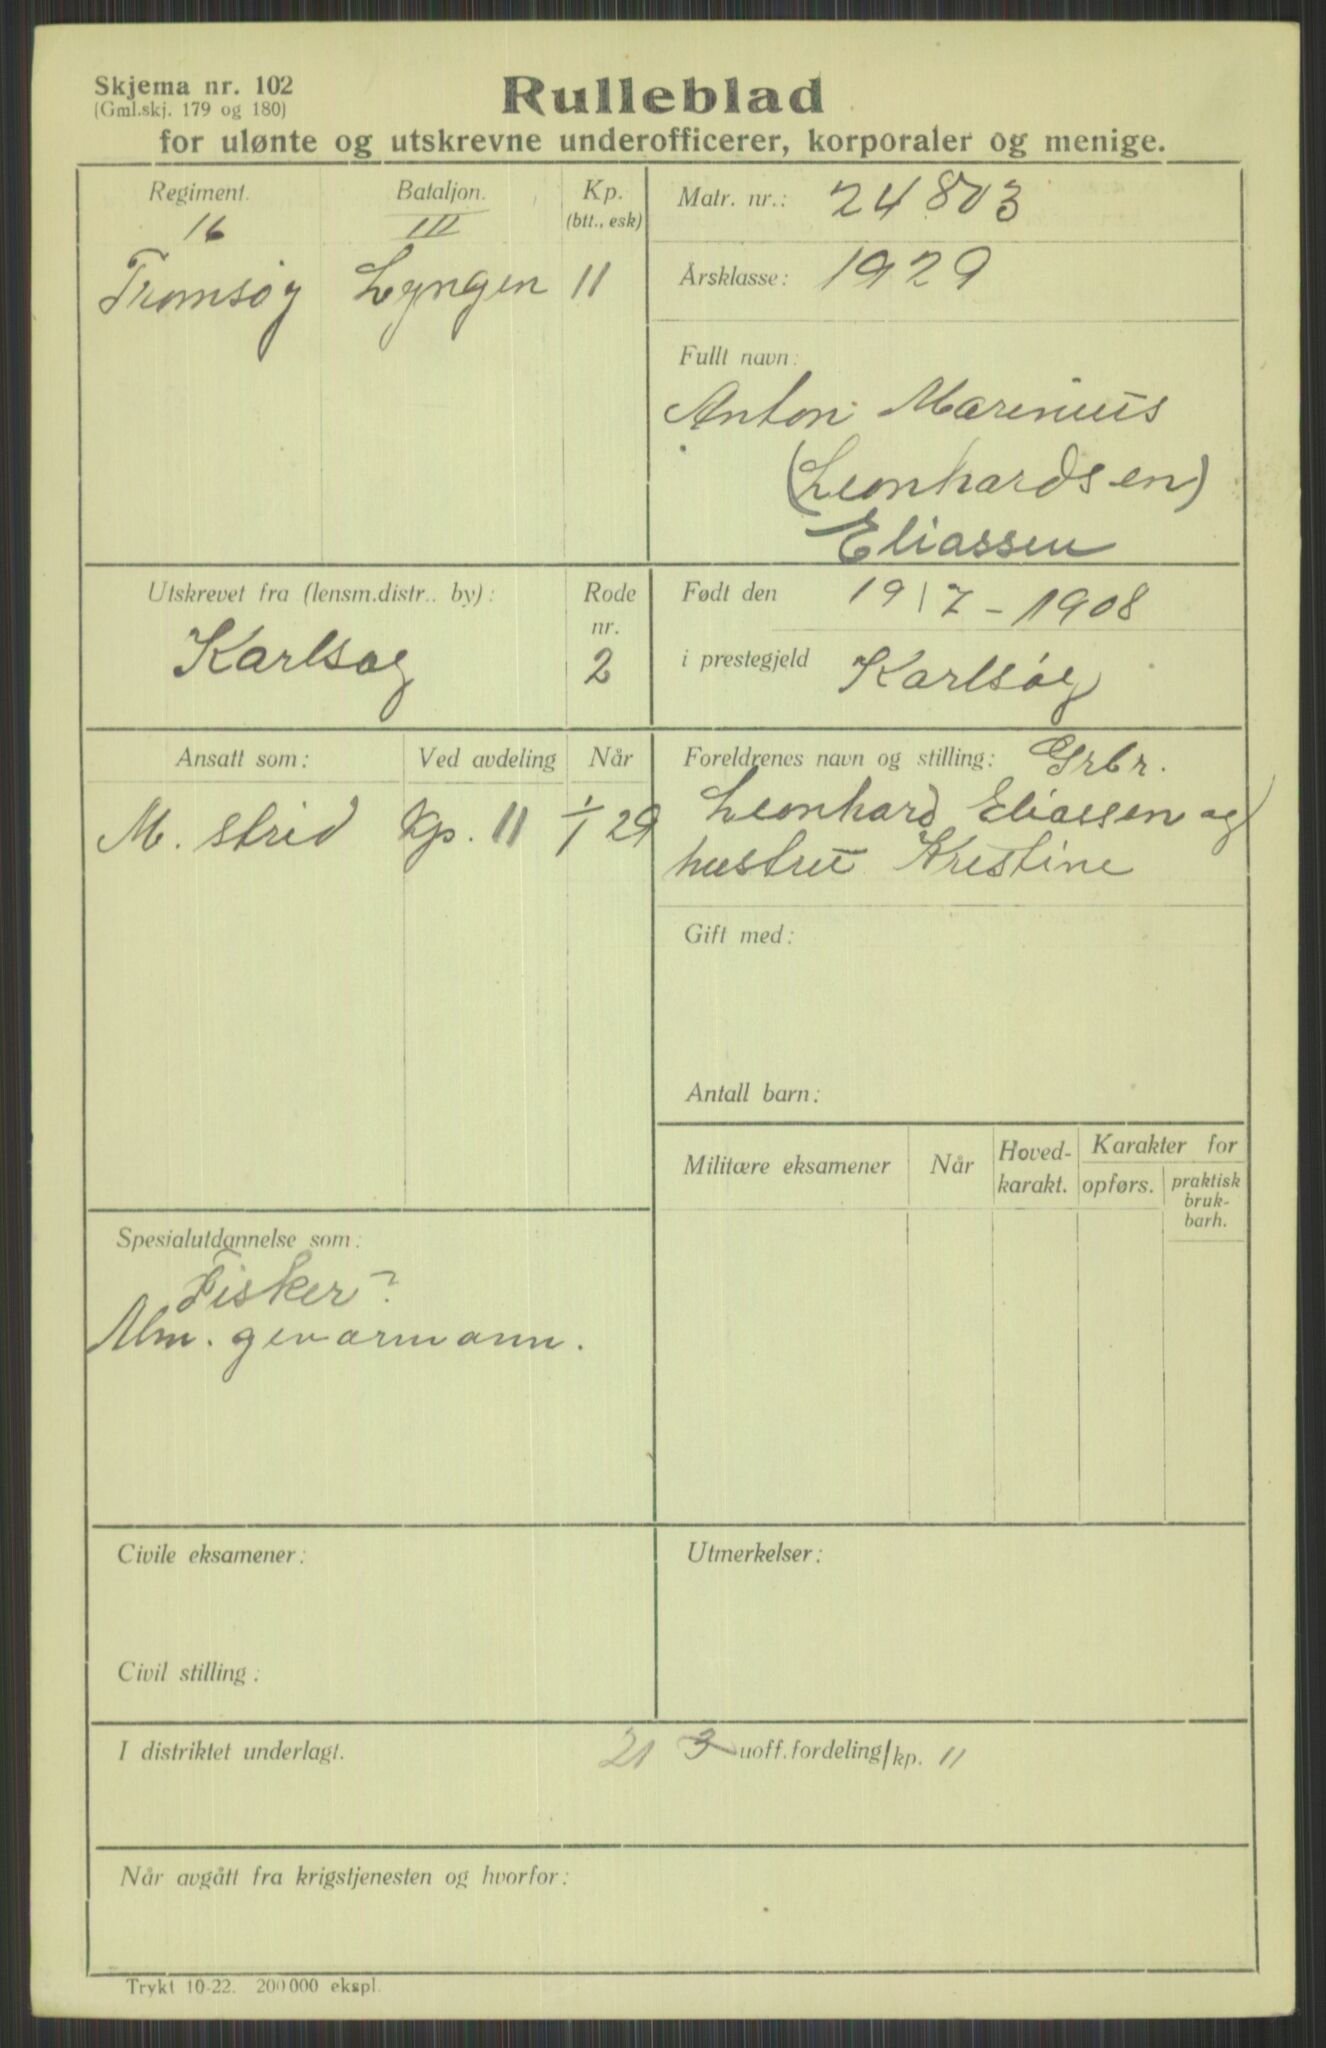 Skjema nr. 102
(Gml.skj. 179 og 180)
Rulleblad
for ulønte og utskrevne underofficerer, korporaler og menige.
Regiment.
16
Tromsøy
Bataljon.
III
Lyngen
Kp.
(btt., esk)
11
Matr. nr.: 24803
Årsklasse: 1929
Fullt navn:
Anton Marinius
(Leonhardsen)
Eliassen
Utskrevet fra (lensm.distr.. by):
Karlsøy
Rode
nr.
2
Født den 19/7-1908
i prestegjeld Karlsøy
Ansatt som:
M. strid
Ved avdeling
Kp. 11
Når
1/1 29
Foreldrenes navn og stilling: Grbr.
Leonhard Eliassen og
hustru Kristine
Gift med:
Antall barn:
Militære eksamener
Når
Hoved-
karakt.
Karakter for
opførs.
praktisk
bruk-
barh.
Spesialutdannelse som:
Fisker?
Alm. geværmann.
Civile eksamener:
Utmerkelser:
Civil stilling:
I distriktet underlagt.
21 3 uoff.fordeling/kp. 11
Når avgått fra krigstjenesten og hvorfor:
Trykt 10-22. 200 000 ekspl.